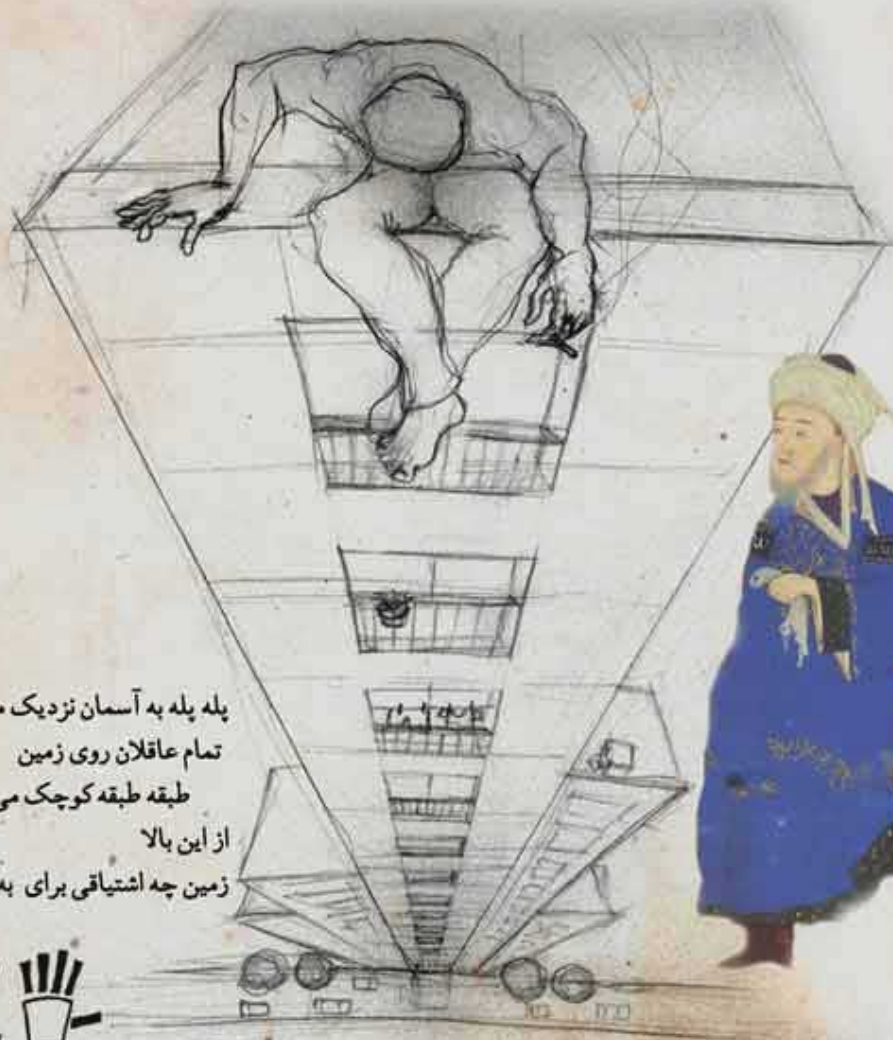 پله پله به آسمان نزدیک
تمام عاقلان روی زمین
طبقه طبقه کوچک
از این بالا
زمین چه اشتیاقی برای